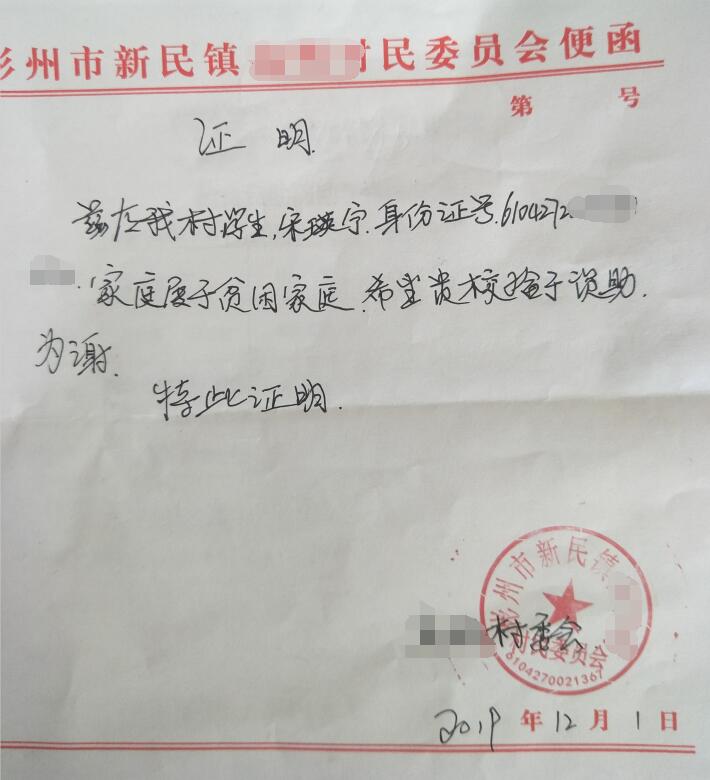 彬州市新民镇 村民委员会便函
第 号
证明
兹有我村学生,宋瑛宁.身份证号.6104272
.家庭属于贫困家庭.希望贵校给于资助.
为谢.
特此证明.
彬州市新民镇
村委会
村民委员会
6104270021367
2019年12月1日